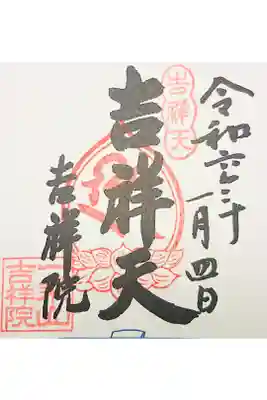 令和六年
一月四日
吉祥天
吉祥天
吉祥院
吉祥院